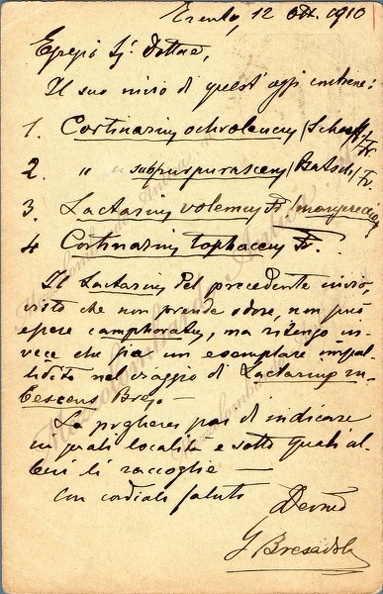 Trento, 12 Ott. 1910
Egregio Sig. Dottore,
Il suo invio di quest'oggi contiene:
1. Cortinarius ochroleucus (Schaeff) Fr.
2. " subpurpurascens (Batsch) Fr.
3. Lactarius volemus Fr
4 Cortinarius tophaceus Fr.
Il Lactarius del precedente invio,
visto che non prende odore, non può
essere camphoratus, ma ritengo in-
vece che sia un esemplare impal-
lidito nel viaggio di Lactarius ru-
bescens Bres.
La pregherei poi di indicare
in quali località e sotto quali al-
beri li raccoglie —
Con cordiali saluti
Devmo
G Bresadola